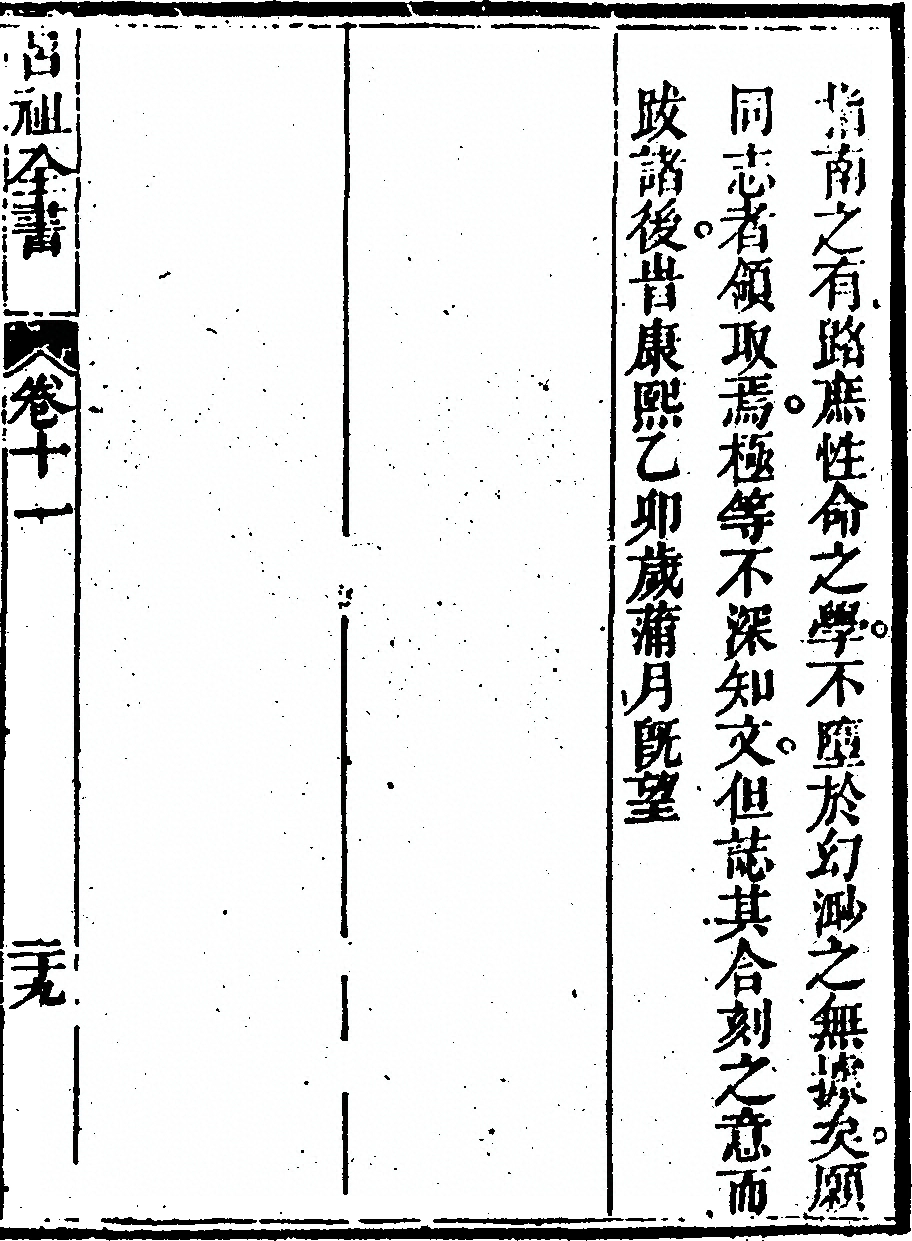 指南之有路庶性命之學。不墮於幻渺之無據矣。願
同志者領取焉。極等不深知文。但誌其合刻之意而
跋諸後。旹康熙乙卯歲蒲月既望
呂祖全書 卷十一 三十九